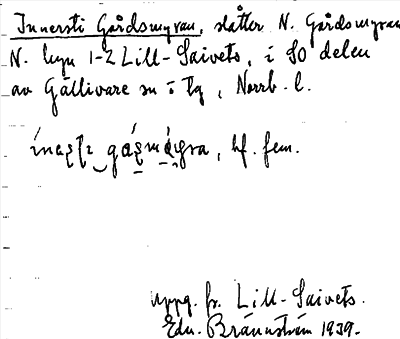 Innersti Gårdsmyran, slåtter N. Gårdsmyran
N. byn 1-2 Lill-Saivets, i SO delen
av Gällivare sn i Lg, Norrb. l.
bf. fem.
uppg. fr. Lill-Saivets.
Edv. Brännström 1939.